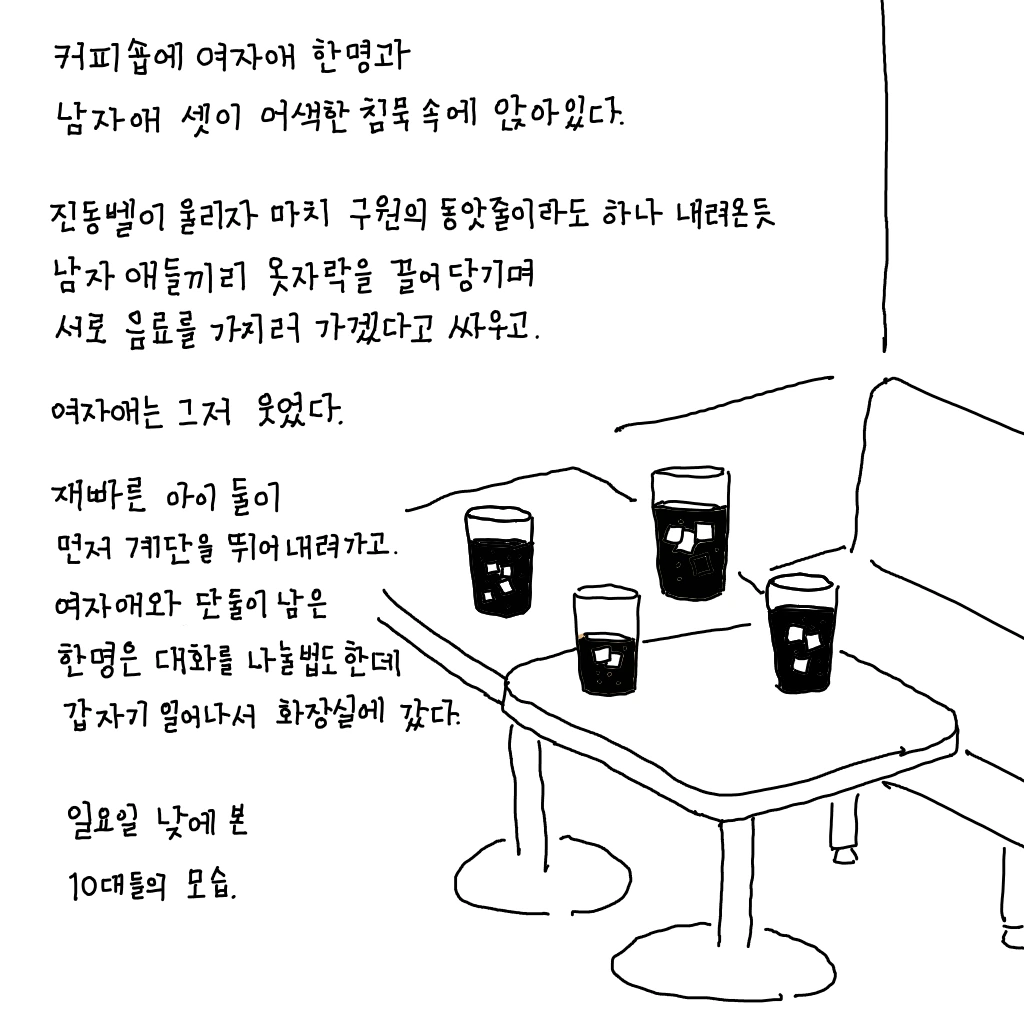 커피숍에 여자애 한명과
남자애 셋이 어색한 침묵 속에 앉아있다.
진동벨이 울리자 마치 구원의 동앗줄이라도 하나 내려온듯
남자 애들끼리 옷자락을 끌어당기며
서로 음료를 가지러 가겠다고 싸우고.
여자애는 그저 웃었다.
재빠른 아이 둘이
먼저 계단을 뛰어내려가고.
여자애와 단둘이 남은
한명은 대화를 나눌법도 한데
갑자기 일어나서 화장실에 갔다.
일요일 낮에 본
10대들의 모습.